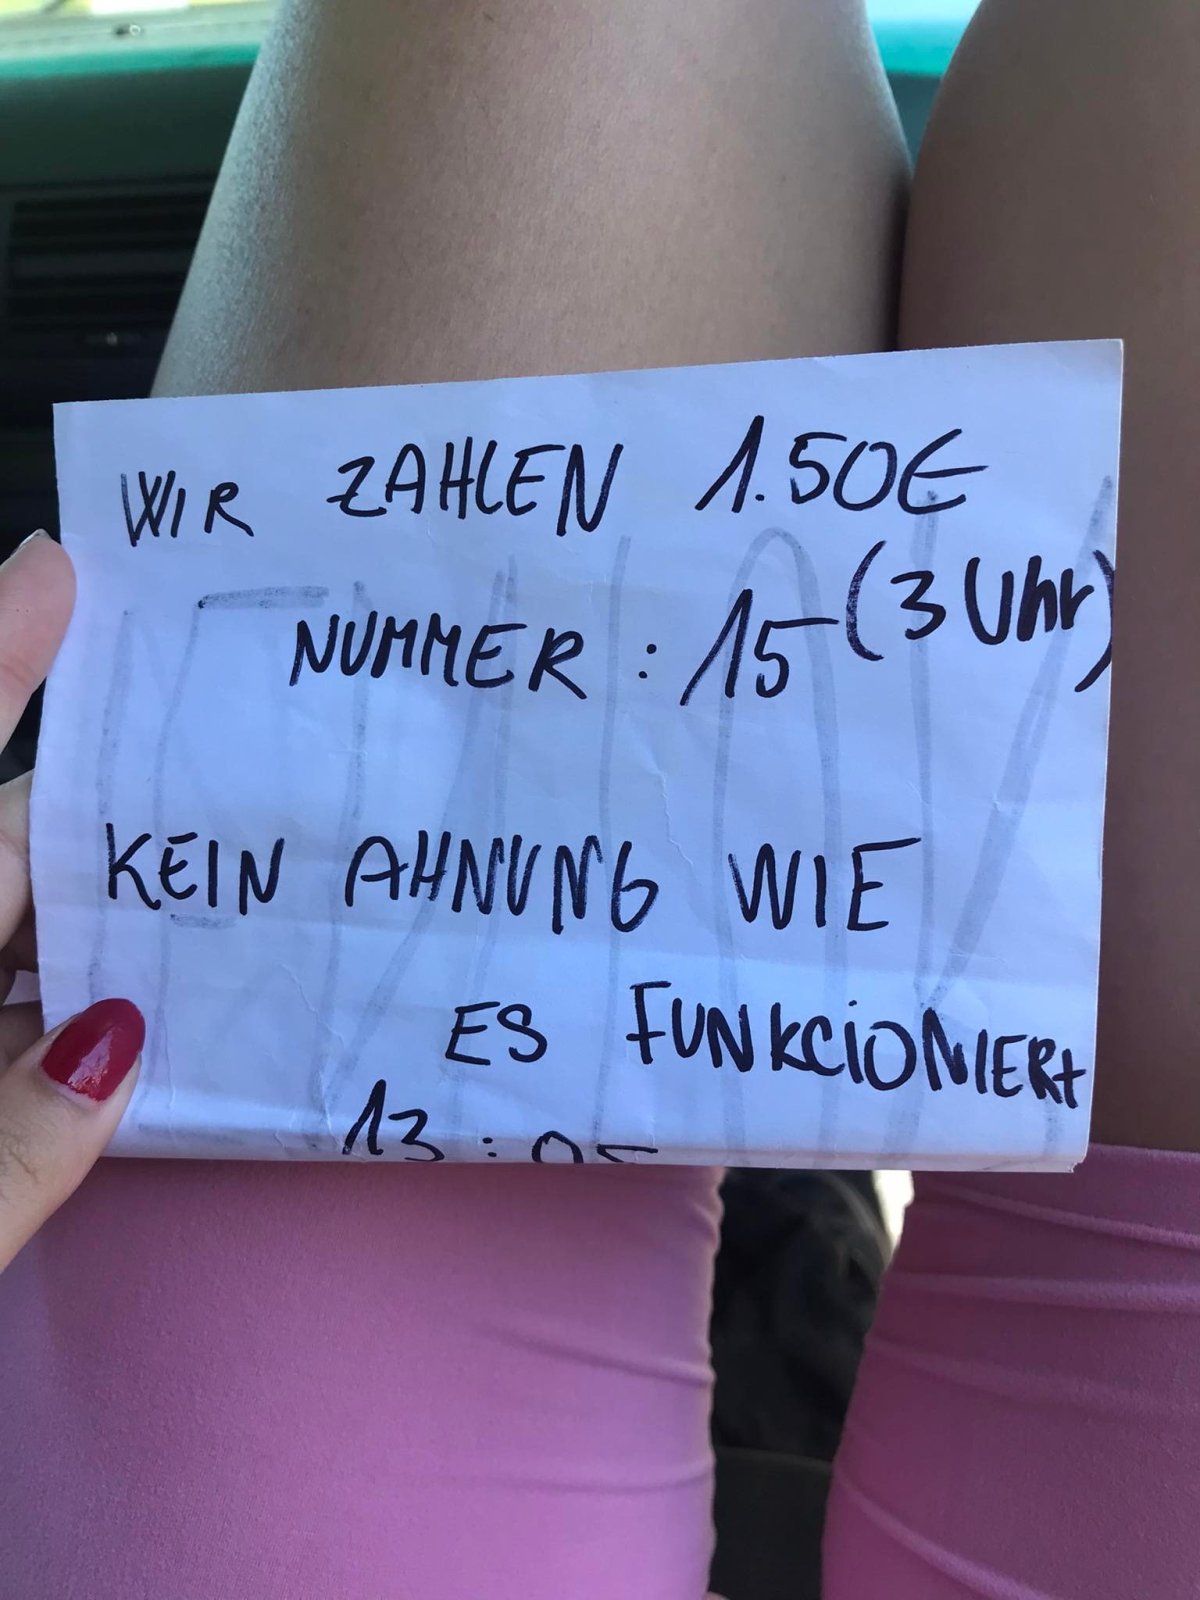 WIR ZAHLEN 1.50€
NUMMER : 15 (3 Uhr)
KEIN AHNUNG WIE
ES FUNKCiONIERt
13 : 05